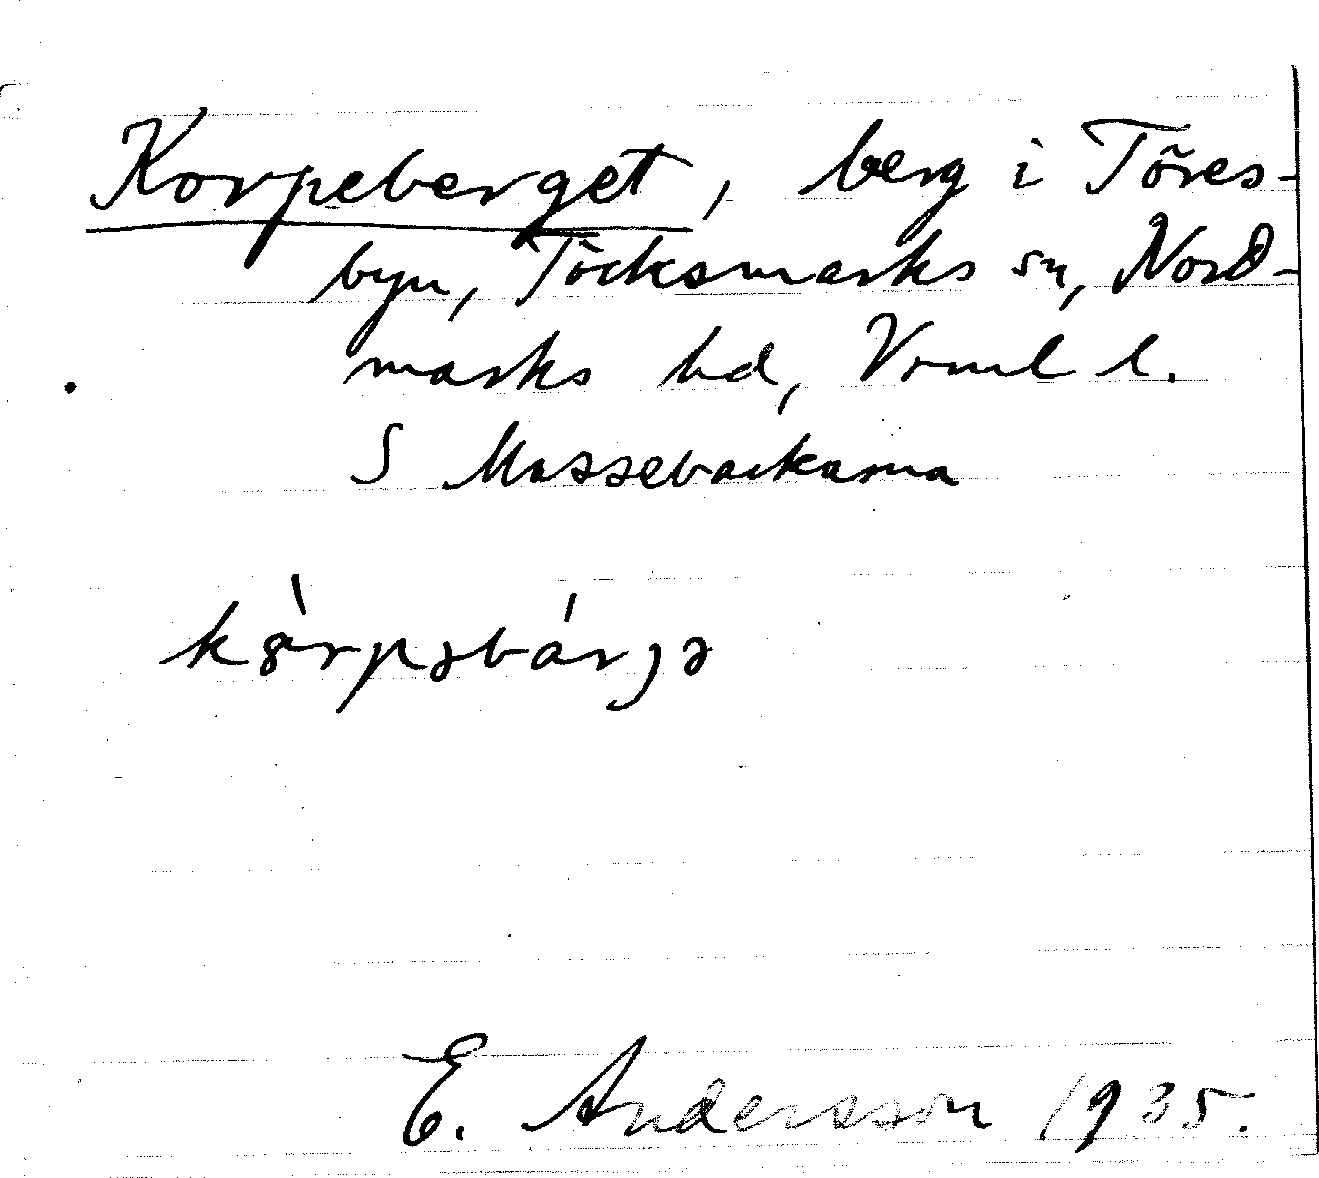 Korpeberget, berg i Töres-
byn, Töcksmarks sn, Nord-
marks hd, Vrml l.
S Mossebackarna
kȣ̀rpəbárjə
E. Andersson 1935.